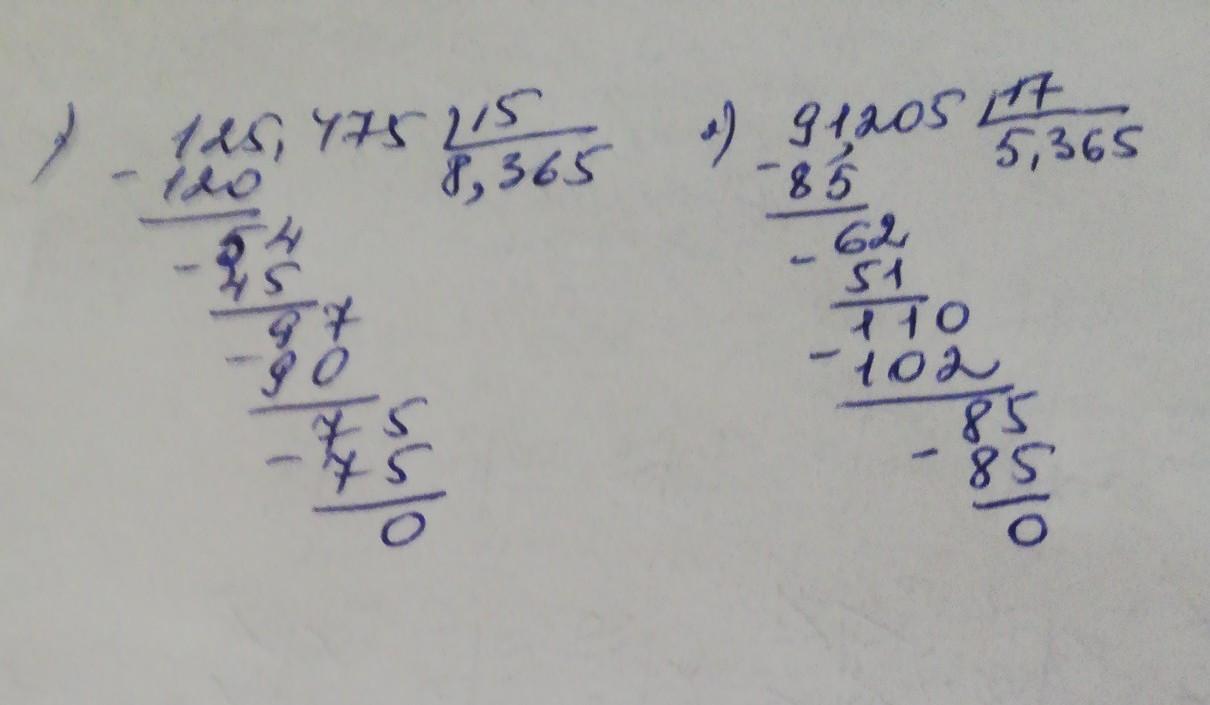 1) 125,475 | 15
- 120 8,365
54
- 45
97
- 90
75
- 75
0
2) 91,205 | 17
- 85 5,365
62
- 51
110
- 102
85
- 85
0